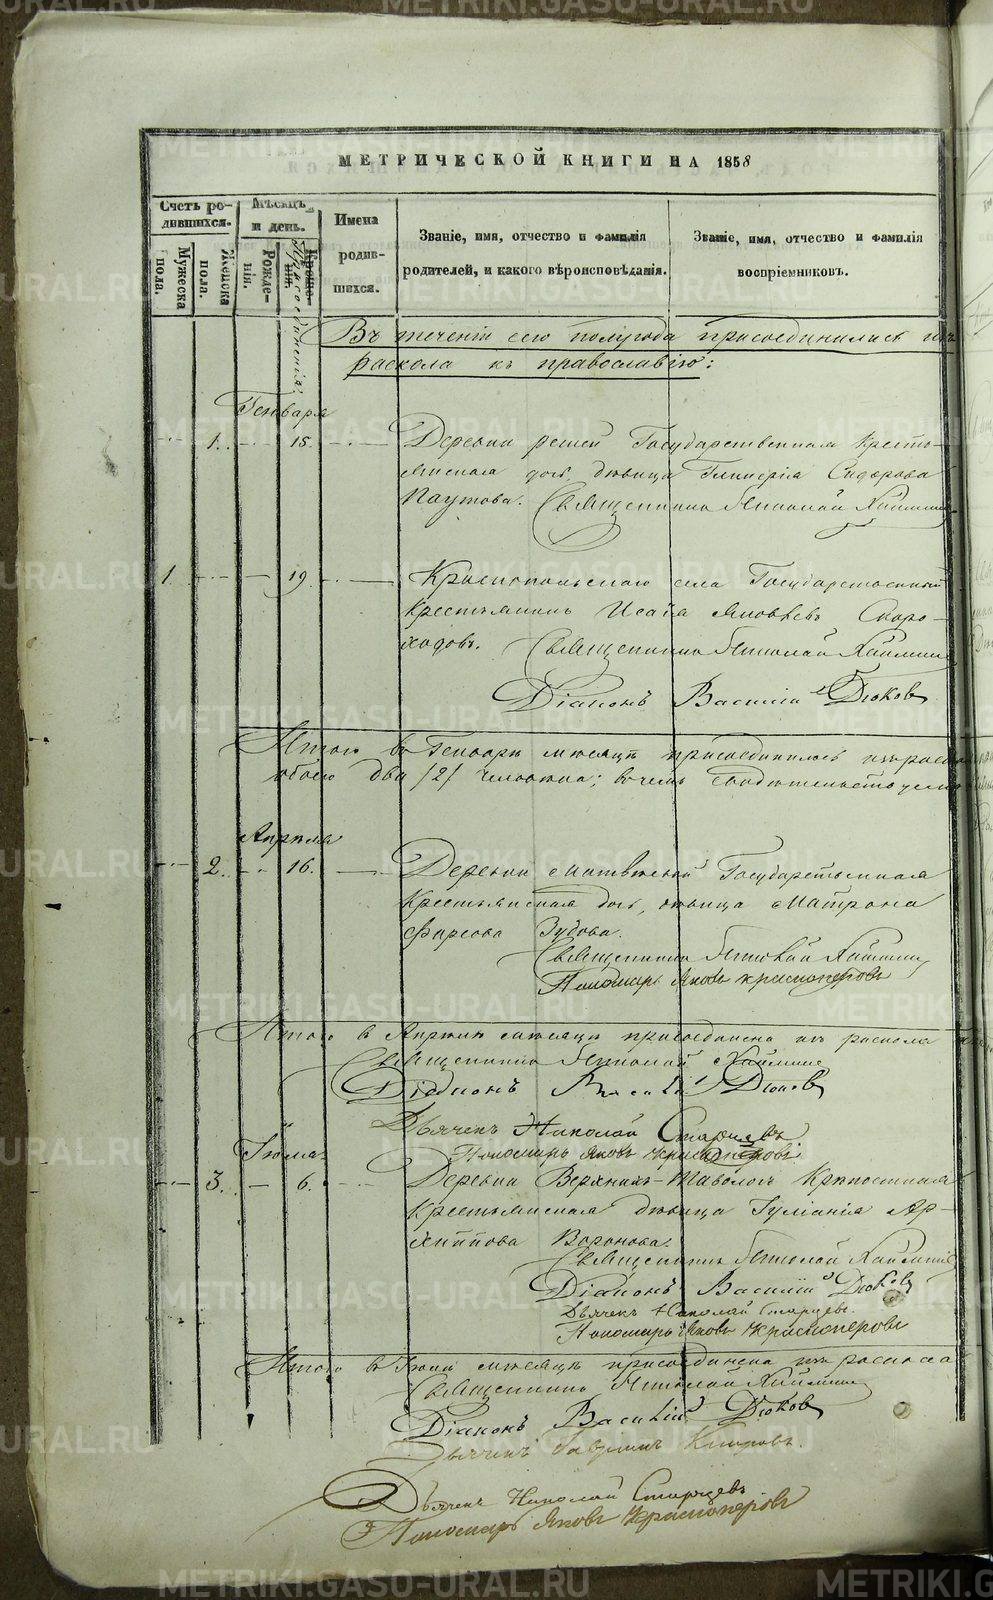 METRIKI.GASO-URAL.RU
МЕТРИЧЕСКОЙ КНИГИ НА 1858
Счетъ ро-
дившихся.
Мѣсяцъ
и день.
Имена
родив-
шихся.
Званіе, имя, отчество и фамилія
родителей, и какого вѣроисповѣданія.
Званіе, имя, отчество и фамилія
воспріемниковъ.
Мужеска
пола.
Женска
пола.
Рожде-
нія.
Креще-
нія.
Присоединенія.
Въ теченіи сего полугода присоединились изъ
раскола къ православію:
Генваря
1. 15.
Деревни Государственная Кресть-
янская дочь, дѣвица Гликерія Сидорова
Паутова. Священникъ Николай
1. 19.
Краснопольскаго села Государственный
Крестьянинъ Исаія Яковлевъ Скоро-
ходовъ. Священникъ Николай
Діаконъ Василій Дюковъ
Итого въ Генварѣ мѣсяцѣ присоединилось изъ раскола
обоего два /2/ человѣка; въ чемъ
Апрѣля
2. 16.
Деревни Государственная
Крестьянская дочь, дѣвица Матрона
Фирсова Зудова.
Священникъ Николай
Пономарь Яковъ Красноперовъ
Итого в Апрѣлѣ мѣсяцѣ присоединена изъ раскола
Священникъ Николай
Діаконъ Василій Дюковъ
Дьячекъ Николай Старцевъ
Пономарь Яковъ Красноперовъ
3. 6.
Деревни Верхнихъ-Тавологъ Крѣпостная
Крестьянская дѣвица Іуліанія Ар-
хиппова Воронова.
Священникъ Николай
Діаконъ Василій Дюковъ
Дьячекъ Николай Старцевъ.
Пономарь Яковъ Красноперовъ
Итого в мѣсяцѣ присоединена изъ раскола
Священникъ Николай
Діаконъ Василій Дюковъ
Дьячекъ Гавріилъ
Дьячекъ Николай Старцевъ
Пономарь Яковъ Красноперовъ
METRIKI.GASO-URAL.RU